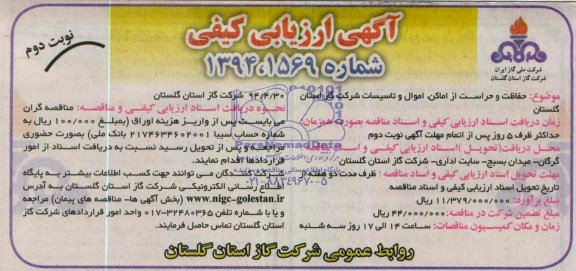 آگهی ارزیابی کیفی
شماره ۱۳۹۴،۱۵۶۹
نوبت دوم
شرکت ملی گاز ایران
شرکت گاز استان گلستان
موضوع: حفاظت و حراست از اماکن، اموال و تاسیسات شرکت گاز استان
گلستان
زمان دریافت اسناد ارزیابی کیفی و اسناد مناقصه بصورت همزمان:
حداکثر ظرف ۵ روز پس از اتمام مهلت آگهی نوبت دوم
محل دریافت(تحویل) اسناد ارزیابی کیفی و اسناد مناقصه:
گرگان- میدان بسیج- سایت اداری- شرکت گاز استان گلستان
مهلت تحویل اسناد ارزیابی کیفی و اسناد مناقصه: ظرف مدت دو هفته از
تاریخ تحویل اسناد ارزیابی کیفی و اسناد مناقصه
مبلغ برآورد: ۱۱/۳۷۹/۰۰۰/۰۰۰ ریال
مبلغ تضمین شرکت در مناقصه: ۴۴/۰۰۰/۰۰۰ ریال
زمان و مکان کمیسیون مناقصات: ساعت ۱۴ الی ۱۷ روز سه شنبه
۹۴/۴/۳۰ شرکت گاز استان گلستان
نحوه دریافت اسناد ارزیابی کیفی و مناقصه: مناقصه گران
می بایست پس از واریز هزینه اوراق (بمبلغ ۱۰۰/۰۰۰ ریال به
شماره حساب سیبا ۲۱۷۴۶۳۴۶۰۲۰۰۱ بانک ملی) بصورت حضوری
مراجعه و پس از تحویل رسید نسبت به دریافت اسناد از امور
قراردادها اقدام نمایند.
شرکت کنندگان می توانند جهت کسب اطلاعات بیشتر به پایگاه
اطلاع رسانی الکترونیکی شرکت گاز استان گلستان به آدرس
www.nigc-golestan.ir (بخش آگهی ها- مناقصه های پیمان) مراجعه
و یا با شماره تلفن ۳۲۴۸۰۳۶۵-۰۱۷ واحد امور قراردادهای شرکت گاز
استان گلستان تماس حاصل فرمایند.
روابط عمومی شرکت گاز استان گلستان
۰۲۱-۸۸۳۴۹۶۷۰-۵